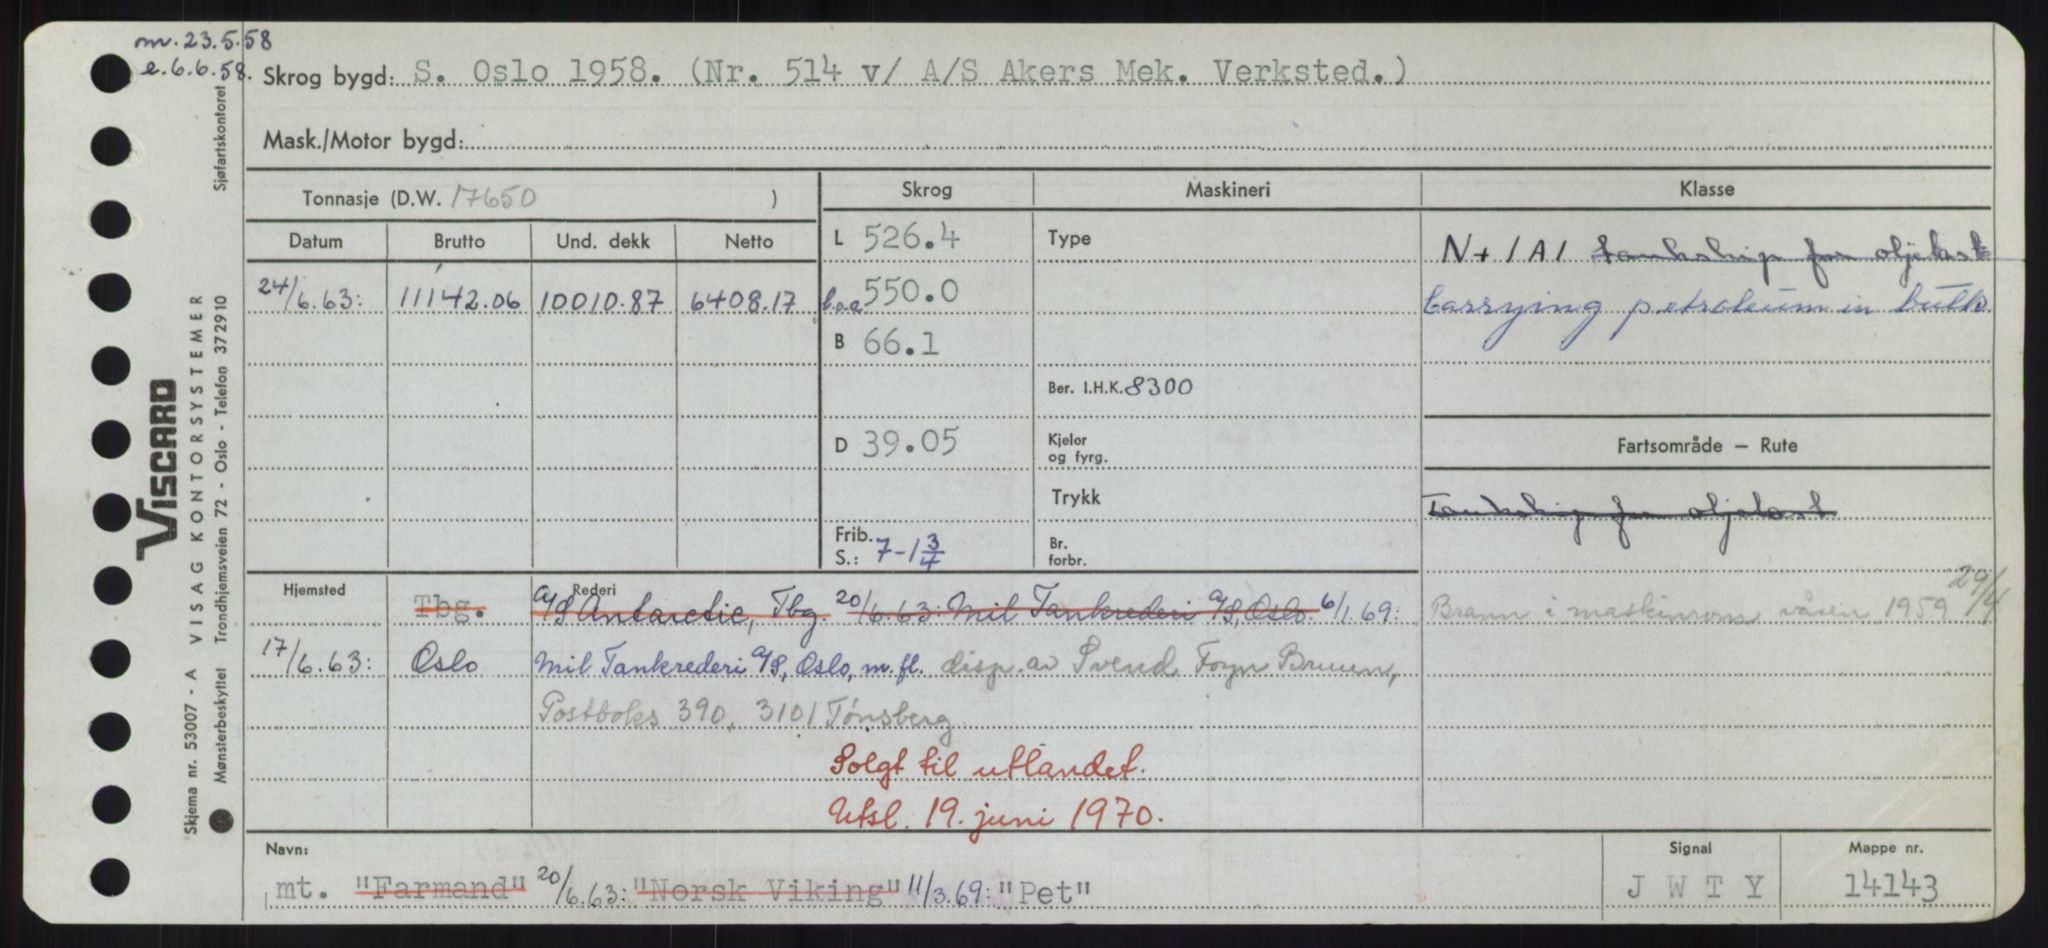 m. 23.5.58
e. 6.6.58. Skrog bygd: S. Oslo 1958. (Nr. 514 v/ A/S Akers Mek. Verksted.)
Mask./Motor bygd:
Tonnasje (D.W. 17650 )
Skrog
Maskineri
Klasse
Datum Brutto Und. dekk Netto
24/6.63: 11142.06 10010.87 6408.17
L 526.4
b.o.a 550.0
B 66.1
D 39.05
Frib. S.: 7-1 3/4
Type
Ber. I.H.K. 8300
Kjeler
og fyrg.
Trykk
Br.
forbr.
N + 1A1 Tankskip for oljelast
Carrying petroleum in bulk.
Fartsområde – Rute
Tankskip for oljelast
29/4
Brann i maskinrom våren 1959
Hjemsted
Rederi
Tbg. A/S Antarctic, Tbg. 20/6.63: Mil Tankrederi A/S, Oslo. 6/1.69:
17/6.63: Oslo Mil Tankrederi A/S, Oslo, m.fl. disp. av Svend Foyn Bruun,
Postboks 390, 3101 Tønsberg
Solgt til utlandet.
Utsl. 19. juni 1970.
Navn:
mt. "Farmand" 20/6.63: "Norsk Viking" 11/3.69: "Pet"
Signal
J W T Y
Mappe nr.
14143
VISCARD
Skjema nr. 53007 - A VISAG KONTORSYSTEMER
Mønsterbeskyttet Trondhjemsveien 72 - Oslo - Telefon 372910 Sjøfartskontoret